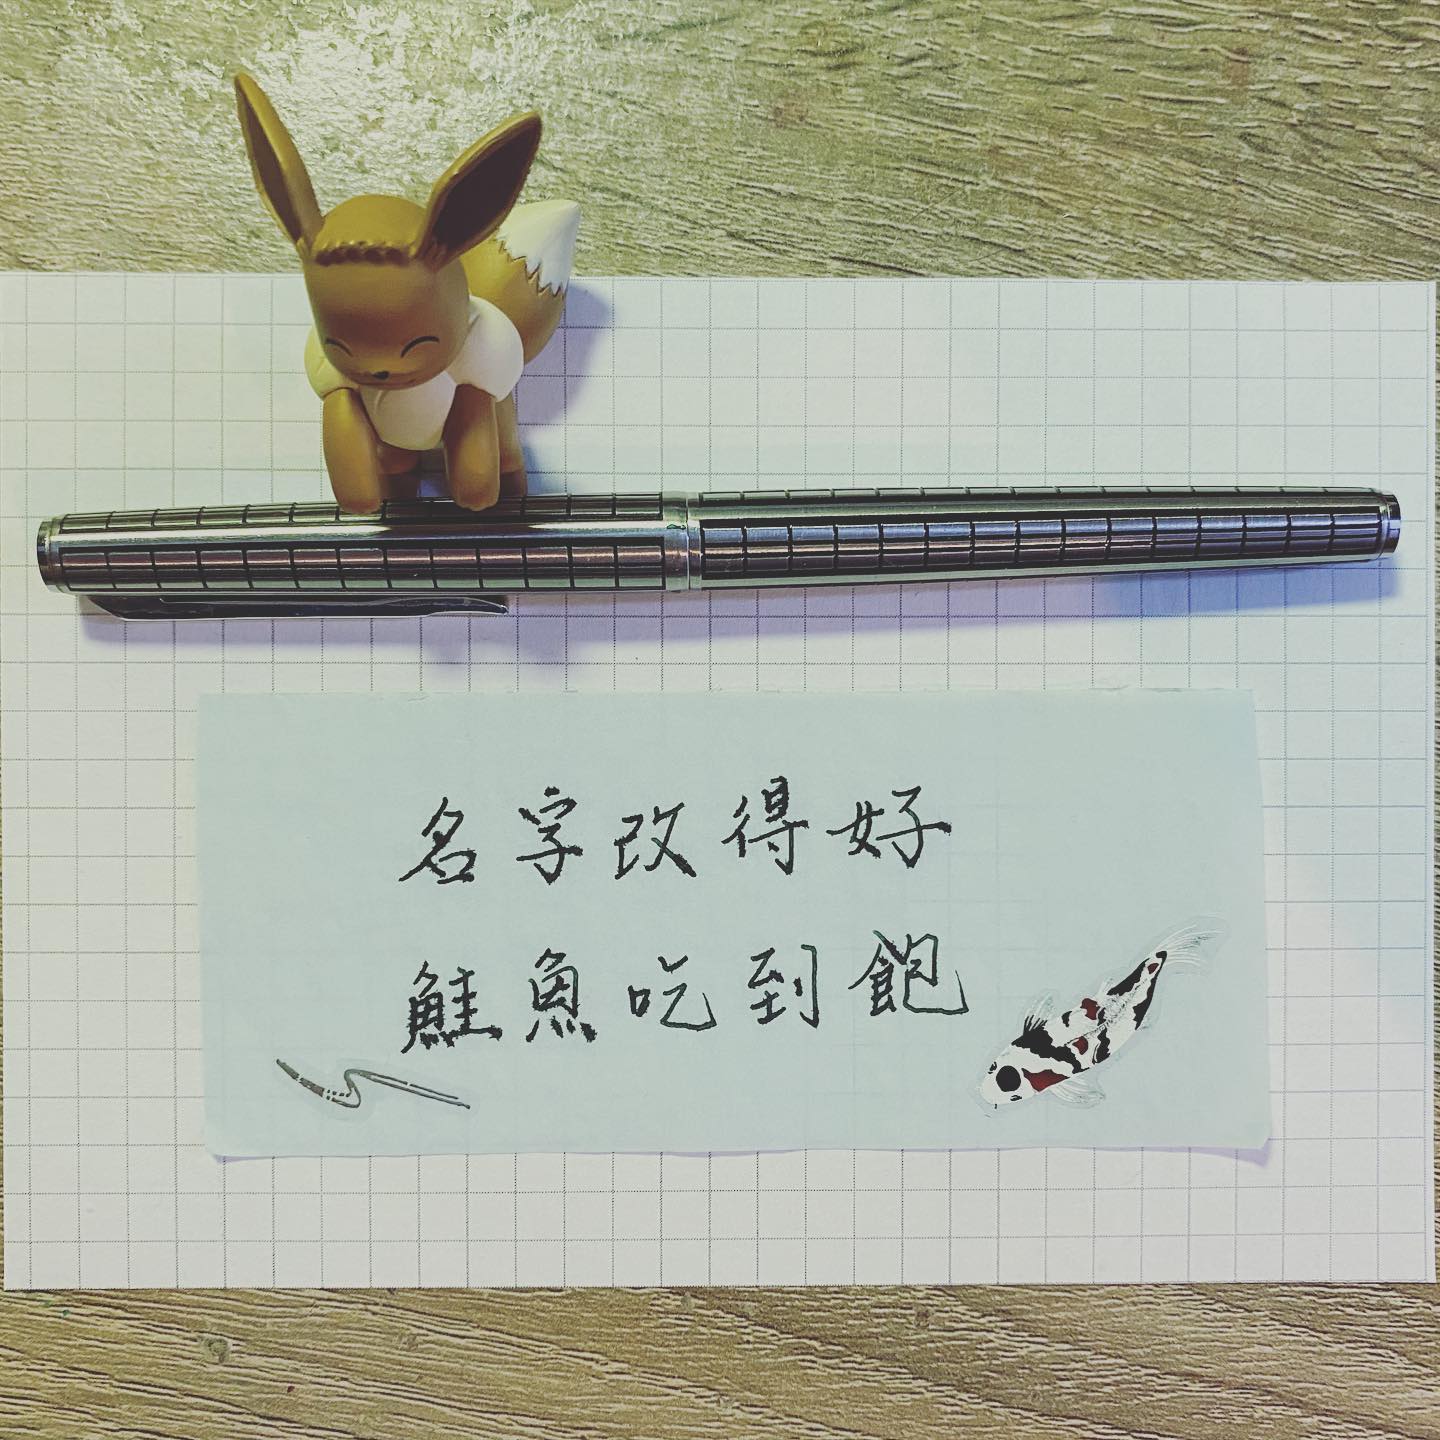 名字改得好
鮭魚吃到飽